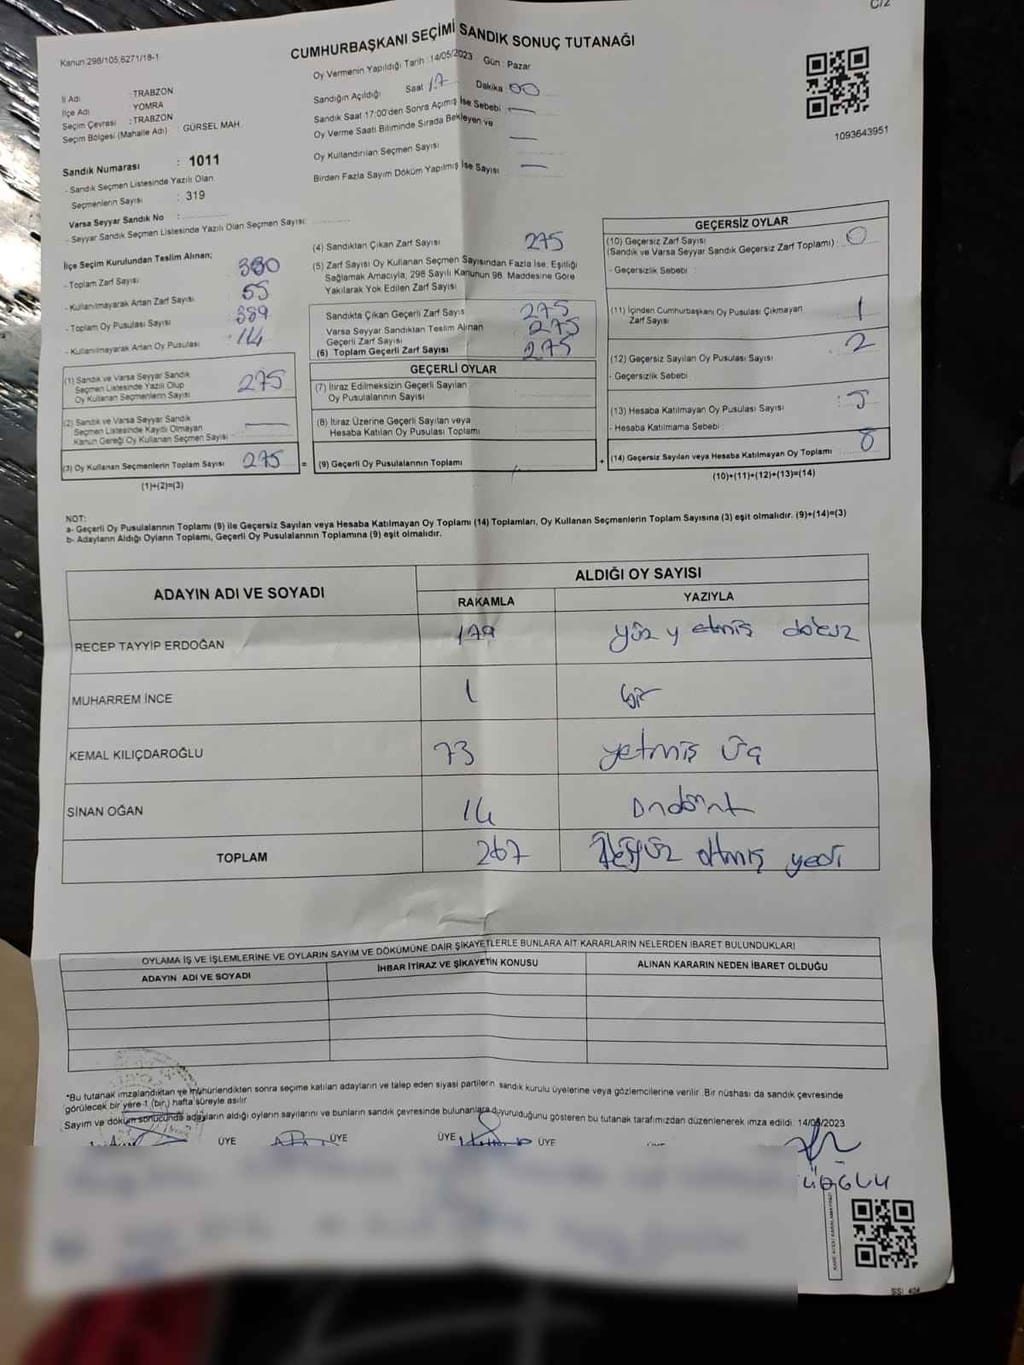 C/2
Kanun 298/105,6271/18-1
CUMHURBAŞKANI SEÇİMİ SANDIK SONUÇ TUTANAĞI
Oy Vermenin Yapıldığı Tarih :14/05/2023 Gün : Pazar
İl Adı : TRABZON
İlçe Adı : YOMRA
Seçim Çevresi : TRABZON
Seçim Bölgesi (Mahalle Adı) : GÜRSEL MAH.
Sandığın Açıldığı Saat 17 Dakika 00
Sandık Saat 17:00'den Sonra Açımış İse Sebebi : —
Oy Verme Saati Bitiminde Sırada Bekleyen ve
Oy Kullandırılan Seçmen Sayısı —
Birden Fazla Sayım Döküm Yapılmış İse Sayısı —
1093643951
Sandık Numarası : 1011
- Sandık Seçmen Listesinde Yazılı Olan
Seçmenlerin Sayısı : 319
Varsa Seyyar Sandık No :
- Seyyar Sandık Seçmen Listesinde Yazılı Olan Seçmen Sayısı:
İlçe Seçim Kurulundan Teslim Alınan;
- Toplam Zarf Sayısı : 330
- Kullanılmayarak Artan Zarf Sayısı 55
- Toplam Oy Pusulası Sayısı : 389
- Kullanılmayarak Artan Oy Pusulası : 114
(1) Sandık ve Varsa Seyyar Sandık
Seçmen Listesinde Yazılı Olup
Oy Kullanan Seçmenlerin Sayısı 275
(2) Sandık ve Varsa Seyyar Sandık
Seçmen Listesinde Kayıtlı Olmayan
Kanun Gereği Oy Kullanan Seçmen Sayısı —
(3) Oy Kullanan Seçmenlerin Toplam Sayısı 275 =
(1)+(2)=(3)
(4) Sandıktan Çıkan Zarf Sayısı 275
(5) Zarf Sayısı Oy Kullanan Seçmen Sayısından Fazla İse, Eşitliği
Sağlamak Amacıyla, 298 Sayılı Kanunun 98. Maddesine Göre
Yakılarak Yok Edilen Zarf Sayısı
Sandıkta Çıkan Geçerli Zarf Sayıs 275
Varsa Seyyar Sandıktan Teslim Alınan
Geçerli Zarf Sayısı 275
(6) Toplam Geçerli Zarf Sayısı 275
GEÇERLİ OYLAR
(7) İtiraz Edilmeksizin Geçerli Sayılan
Oy Pusulalarının Sayısı
(8) İtiraz Üzerine Geçerli Sayılan veya
Hesaba Katılan Oy Pusulası Toplamı
(9) Geçerli Oy Pusulalarının Toplamı +
GEÇERSİZ OYLAR
(10) Geçersiz Zarf Sayısı
(Sandık ve Varsa Seyyar Sandık Geçersiz Zarf Toplamı) : 0
- Geçersizlik Sebebi
(11) İçinden Cumhurbaşkanı Oy Pusulası Çıkmayan
Zarf Sayısı 1
(12) Geçersiz Sayılan Oy Pusulası Sayısı 2
- Geçersizlik Sebebi
(13) Hesaba Katılmayan Oy Pusulası Sayısı : 5
- Hesaba Katılmama Sebebi :
(14) Geçersiz Sayılan veya Hesaba Katılmayan Oy Toplamı 8
(10)+(11)+(12)+(13)=(14)
NOT:
a- Geçerli Oy Pusulalarının Toplamı (9) ile Geçersiz Sayılan veya Hesaba Katılmayan Oy Toplamı (14) Toplamları, Oy Kullanan Seçmenlerin Toplam Sayısına (3) eşit olmalıdır. (9)+(14)=(3)
b- Adayların Aldığı Oyların Toplamı, Geçerli Oy Pusulalarının Toplamına (9) eşit olmalıdır.
ADAYIN ADI VE SOYADI ALDIĞI OY SAYISI
RAKAMLA YAZIYLA
RECEP TAYYİP ERDOĞAN 179 yüz yetmiş dokuz
MUHARREM İNCE 1 bir
KEMAL KILIÇDAROĞLU 73 yetmiş üç
SİNAN OĞAN 14 ondört
TOPLAM 267 ikiyüz altmış yedi
OYLAMA İŞ VE İŞLEMLERİNE VE OYLARIN SAYIM VE DÖKÜMÜNE DAİR ŞİKAYETLERLE BUNLARA AİT KARARLARIN NELERDEN İBARET BULUNDUKLARI
ADAYIN ADI VE SOYADI İHBAR İTİRAZ VE ŞİKAYETİN KONUSU ALINAN KARARIN NEDEN İBARET OLDUĞU
*Bu tutanak imzalandıktan ve mühürlendikten sonra seçime katılan adayların ve talep eden siyasi partilerin sandık kurulu üyelerine veya gözlemcilerine verilir. Bir nüshası da sandık çevresinde
görülecek bir yere 1 (bir) hafta süreyle asılır
Sayım ve döküm sonucunda adayların aldığı oyların sayılarını ve bunların sandık çevresinde bulunanlara duyurulduğunu gösteren bu tutanak tarafımızdan düzenlenerek imza edildi. 14/05/2023
ÜYE ÜYE ÜYE ÜYE